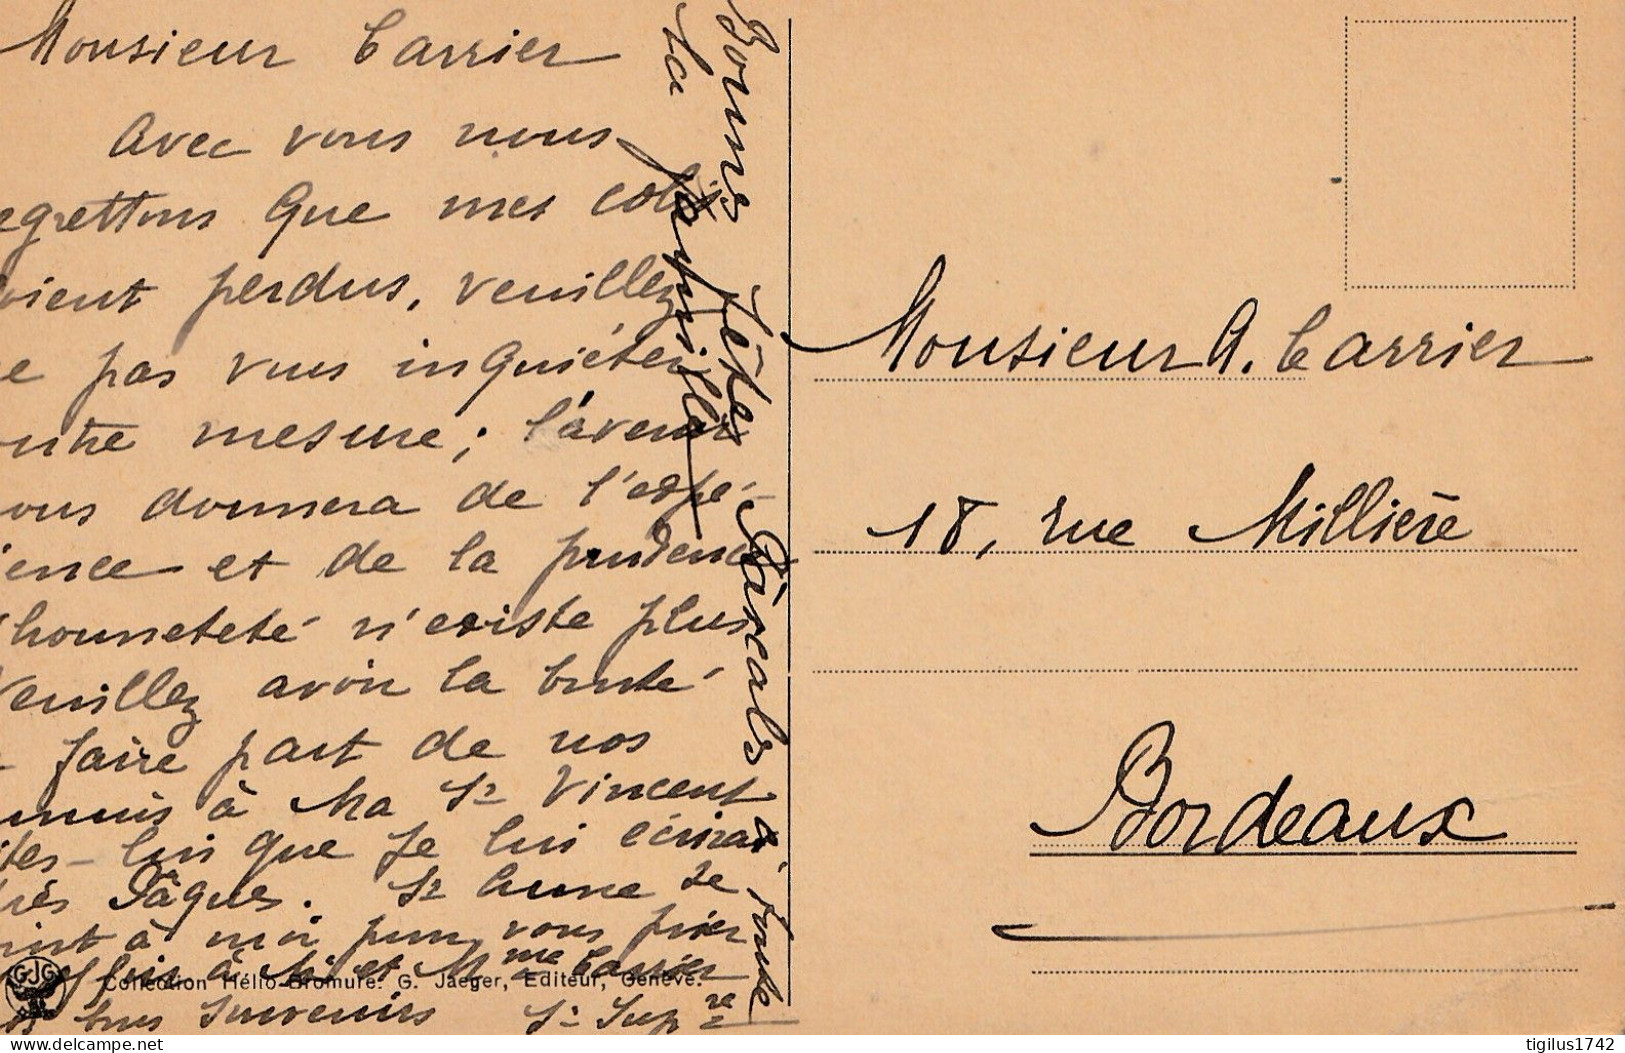 Monsieur Carrier
Avec vous nous
egrettons que mes colis
oient perdus, veuillez
e pas vous inquiéter
outre mesure; l'avenir
ous donnera de l'expé-
ience et de la prudence
l'honneteté n'existe plus
Veuillez avoir la bonté
faire part de nos
ennuis à Ma Sr Vincent
ites-lui que je lui écrirai
près Pâques. Sr Anne se
oint à moi pour vous prier
à Mr et Mme Carrier
os bons souvenirs Sr Supre
Bonnes Fêtes Pascales à toute
la famille
Collection Hélio-Bromure. G. Jaeger, Editeur, Genève.
GJG
Monsieur A. Carrier
18, rue Millière
Bordeaux
delcampe.net
tigilus1742